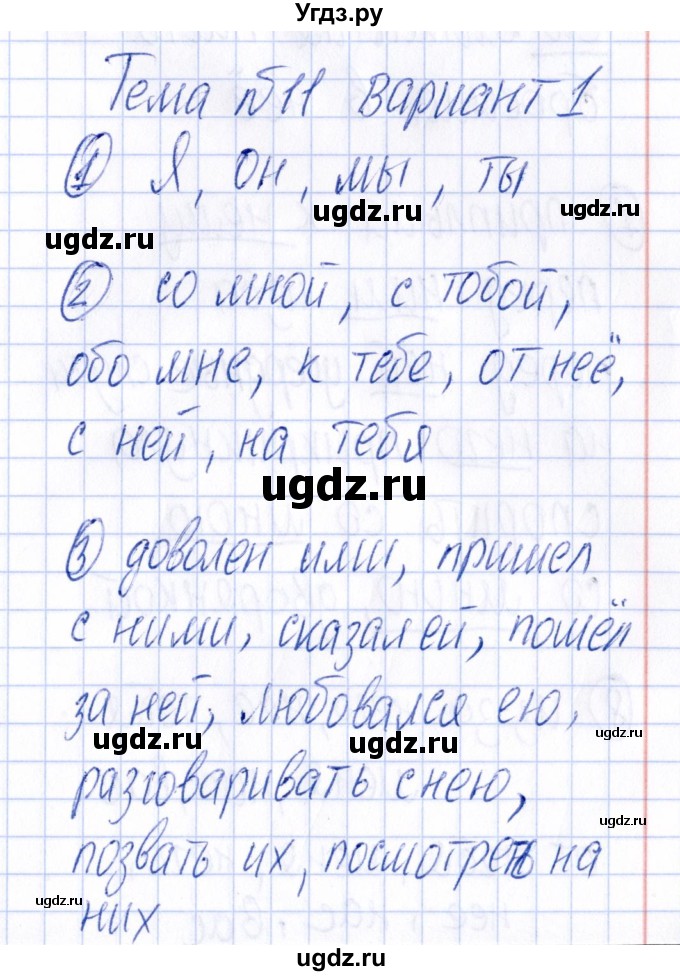 Угдз.ру
Тема №11 Вариант 1
① Я, он, мы, ты
ugdz.ru ugdz.ru
② со мной, с тобой,
обо мне, к тебе, от неё,
с ней, на тебя
ugdz.ru
③ доволен ими, пришел
с ними, сказал ей, пошёл
за ней, любовался ею,
ugdz.ru ugdz.ru ugdz.ru
разговаривать с нею,
ugdz.ru
позвать их, посмотреть на
ugdz.ru
них
ugdz.ru